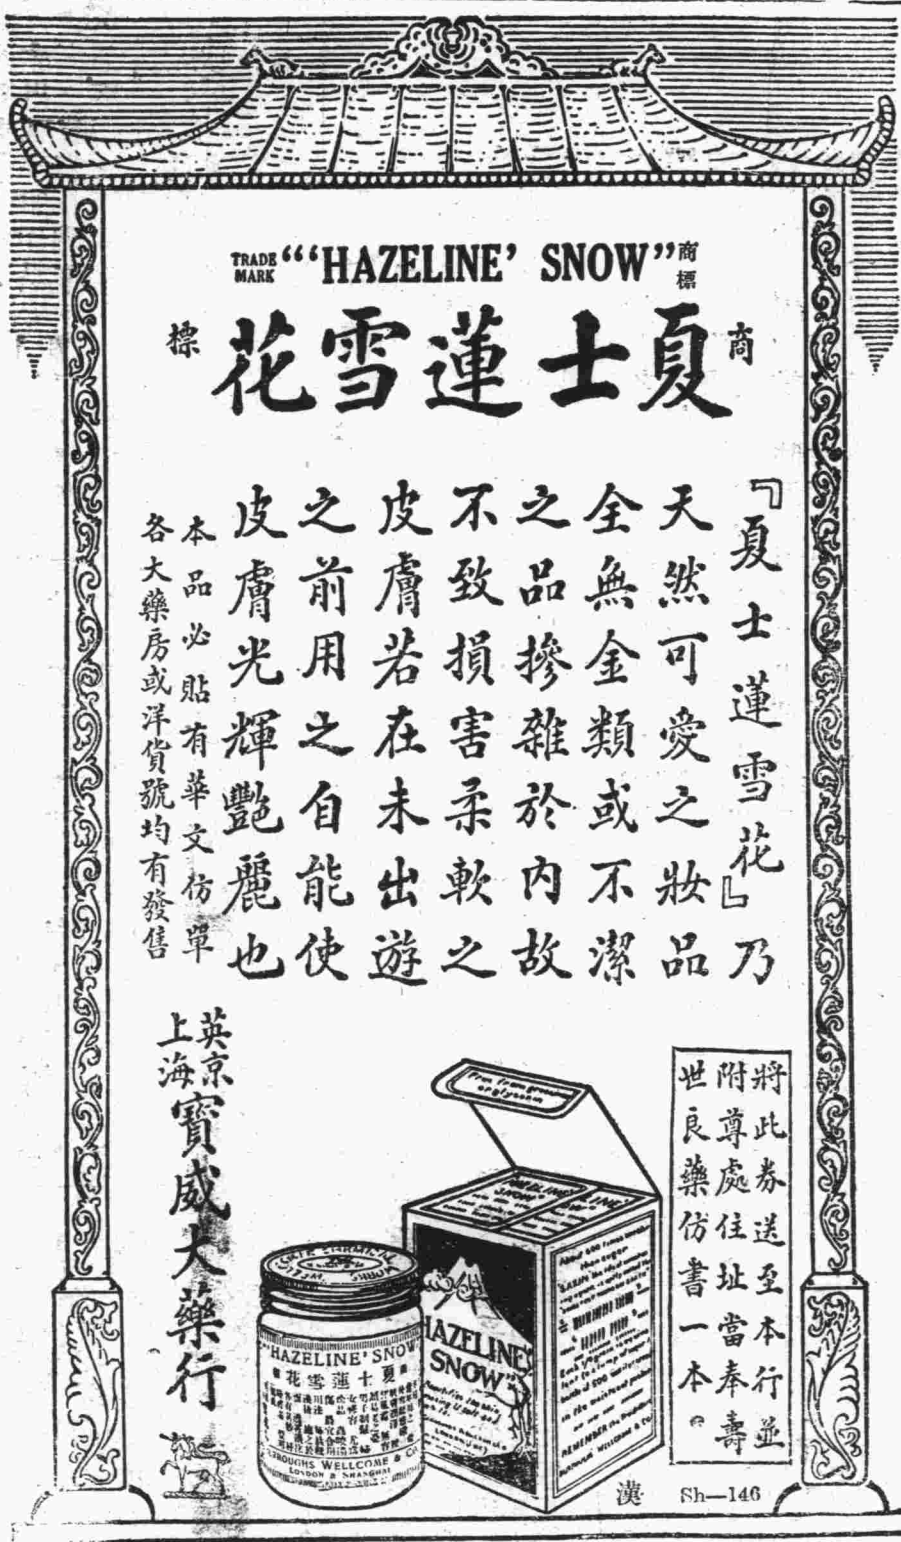 TRADE MARK "'HAZELINE' SNOW" 商標
商標
夏士蓮雪花
『夏士蓮雪花』乃
天然可愛之妝品
全無金類或不潔
之品摻雜於內故
不致損害柔軟之
皮膚若在未出遊
之前用之自能使
皮膚光輝艷麗也
本品必貼有華文仿單
各大藥房或洋貨號均有發售
英京
上海
寶威大藥行
將此券送至本行並
附尊處住址當奉壽
世良藥仿書一本。
HAZELINE'
SNOW"
"HAZELINE' SNOW"
夏士蓮雪花
BURROUGHS WELLCOME & CO.
LONDON & SHANGHAI
漢 Sh—146